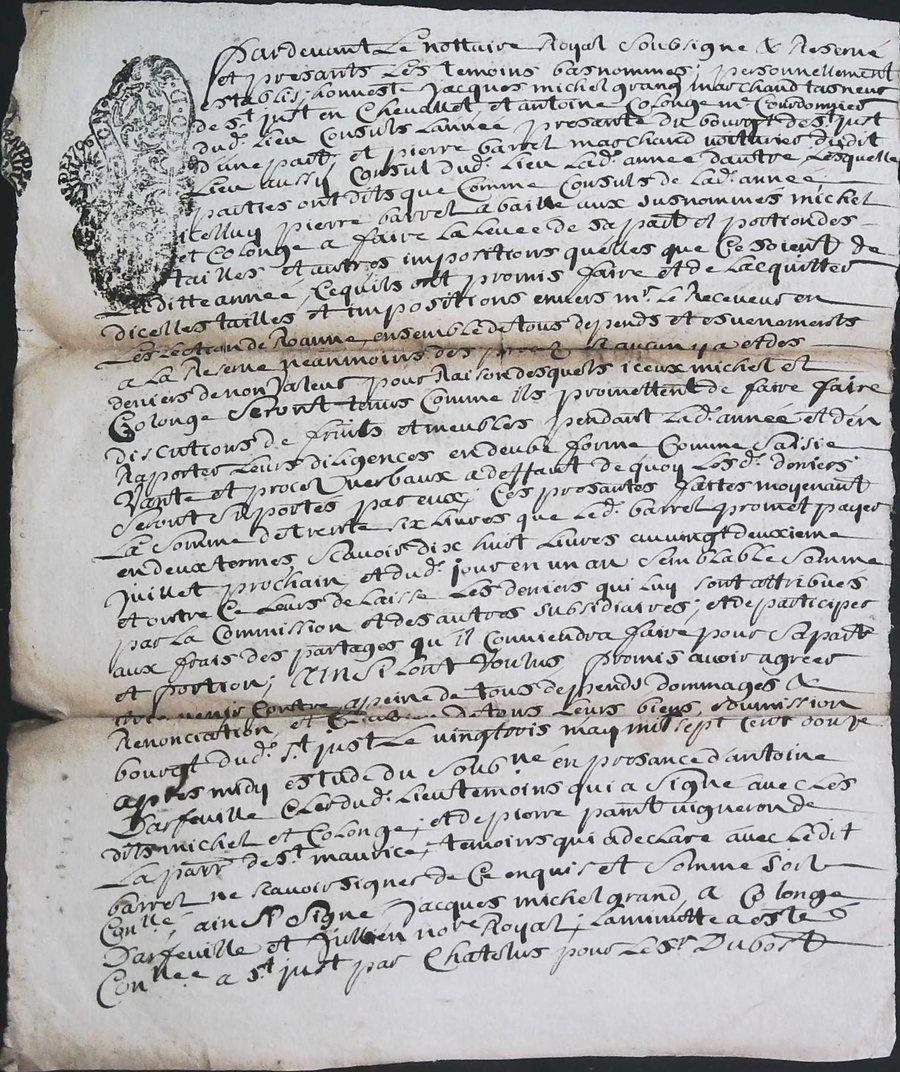 Pardevant Le nottaire Royal Soubsigne & Reservé
et presants Les temoins basnommes, personnellement
establis honneste Jacques michel grand marchand taneur
de st just en Chevallet, et antoine Colonge mr Courdonnier
dud. Lieu Consuls Lannée presante du bourgt de st just
dune part, et pierre barret marchand voiturier dudit
Lieu aussy Consul dud. Lieu Lad. année dautre Lesquelle
parties ont dit que Comme Consuls de Lad. année
icelluy pierre barret a baillé aux susnommes michel
et Colonge a faire La Levee de sa part et portion des
tailles et autres impositions quelles que Ce soient de
Laditte année, Cequils ont promis faire et de Lacquitter
dicelles tailles et impositions envers mr. Le Receveur en
Leslection de Roanne, ensemble de tous depends et esvenements
a La Reserve neanmoins des sy aucun y a et des
deniers de non valeur pour Raison desquels iceux michel et
Colonge seront tenus Comme ils promettent de faire faire
discutions de fruits et meubles pendant Led. année et den
Raporter Leurs diligences en deube forme Comme Saisie
Vante et procez verbaux a deffaut de quoy Lesd. deniers
Seront suportés par eux; Ces presantes faittes moyenant
La Somme de trente six Livres que Led. barret promet payer
en deux termes scavoir dix huit Livres au vingt deuxieme
Juillet prochain et dud. jour en un an Semblable Somme
et outre Ce Leurs delaisse Les deniers qui Luy sont attribues
par La Commission et des autres subsidiaires; et de participer
aux frais des partages qu'il Conviendra faire pour sa part
et portion; Ainsi Lont Voulus promis avoir agrees
Contre a peine de tous depends dommages &
Renonciation et de tous Leurs biens, Soumission
bourgt dud. st just Le vingtrois may mil sept Cent douze
apres midy estude du Soubné en presance dantoine
Darfeuille Clerc dud. Lieu temoins qui a Signé avec Les
dits michel et Colonge, et de pierre vigneron de
La parr. de st maurice, temoins qui a declare avec Ledit
barret ne scavoir signer de Ce enquis et Somme Soit
Conllé, ainsi Signé Jacques michel grand, A Colonge
Darfeuille et Jullien notre Royal, La minutte a esté
Conllee a st just par Chatelus pour Le sr Dubost